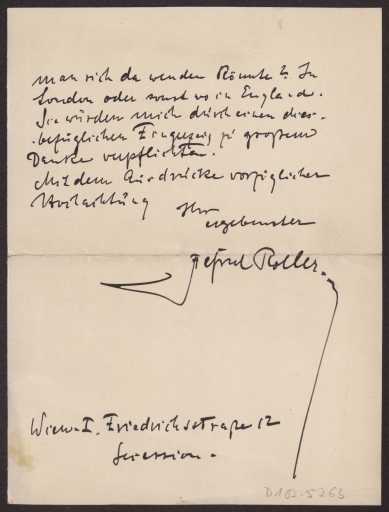 man sich da wenden könnte? In
London oder sonst wo in England.
Sie würden mich durch einen dies-
bezüglichen Fingerzeig zu großem
Danke verpflichten.
Mit dem Ausdrucke vorzüglicher
Hochachtung
Ihr
ergebenster
Alfred Roller.
Wien I. Friedrichstraße 12
Secession.
D 102.5263